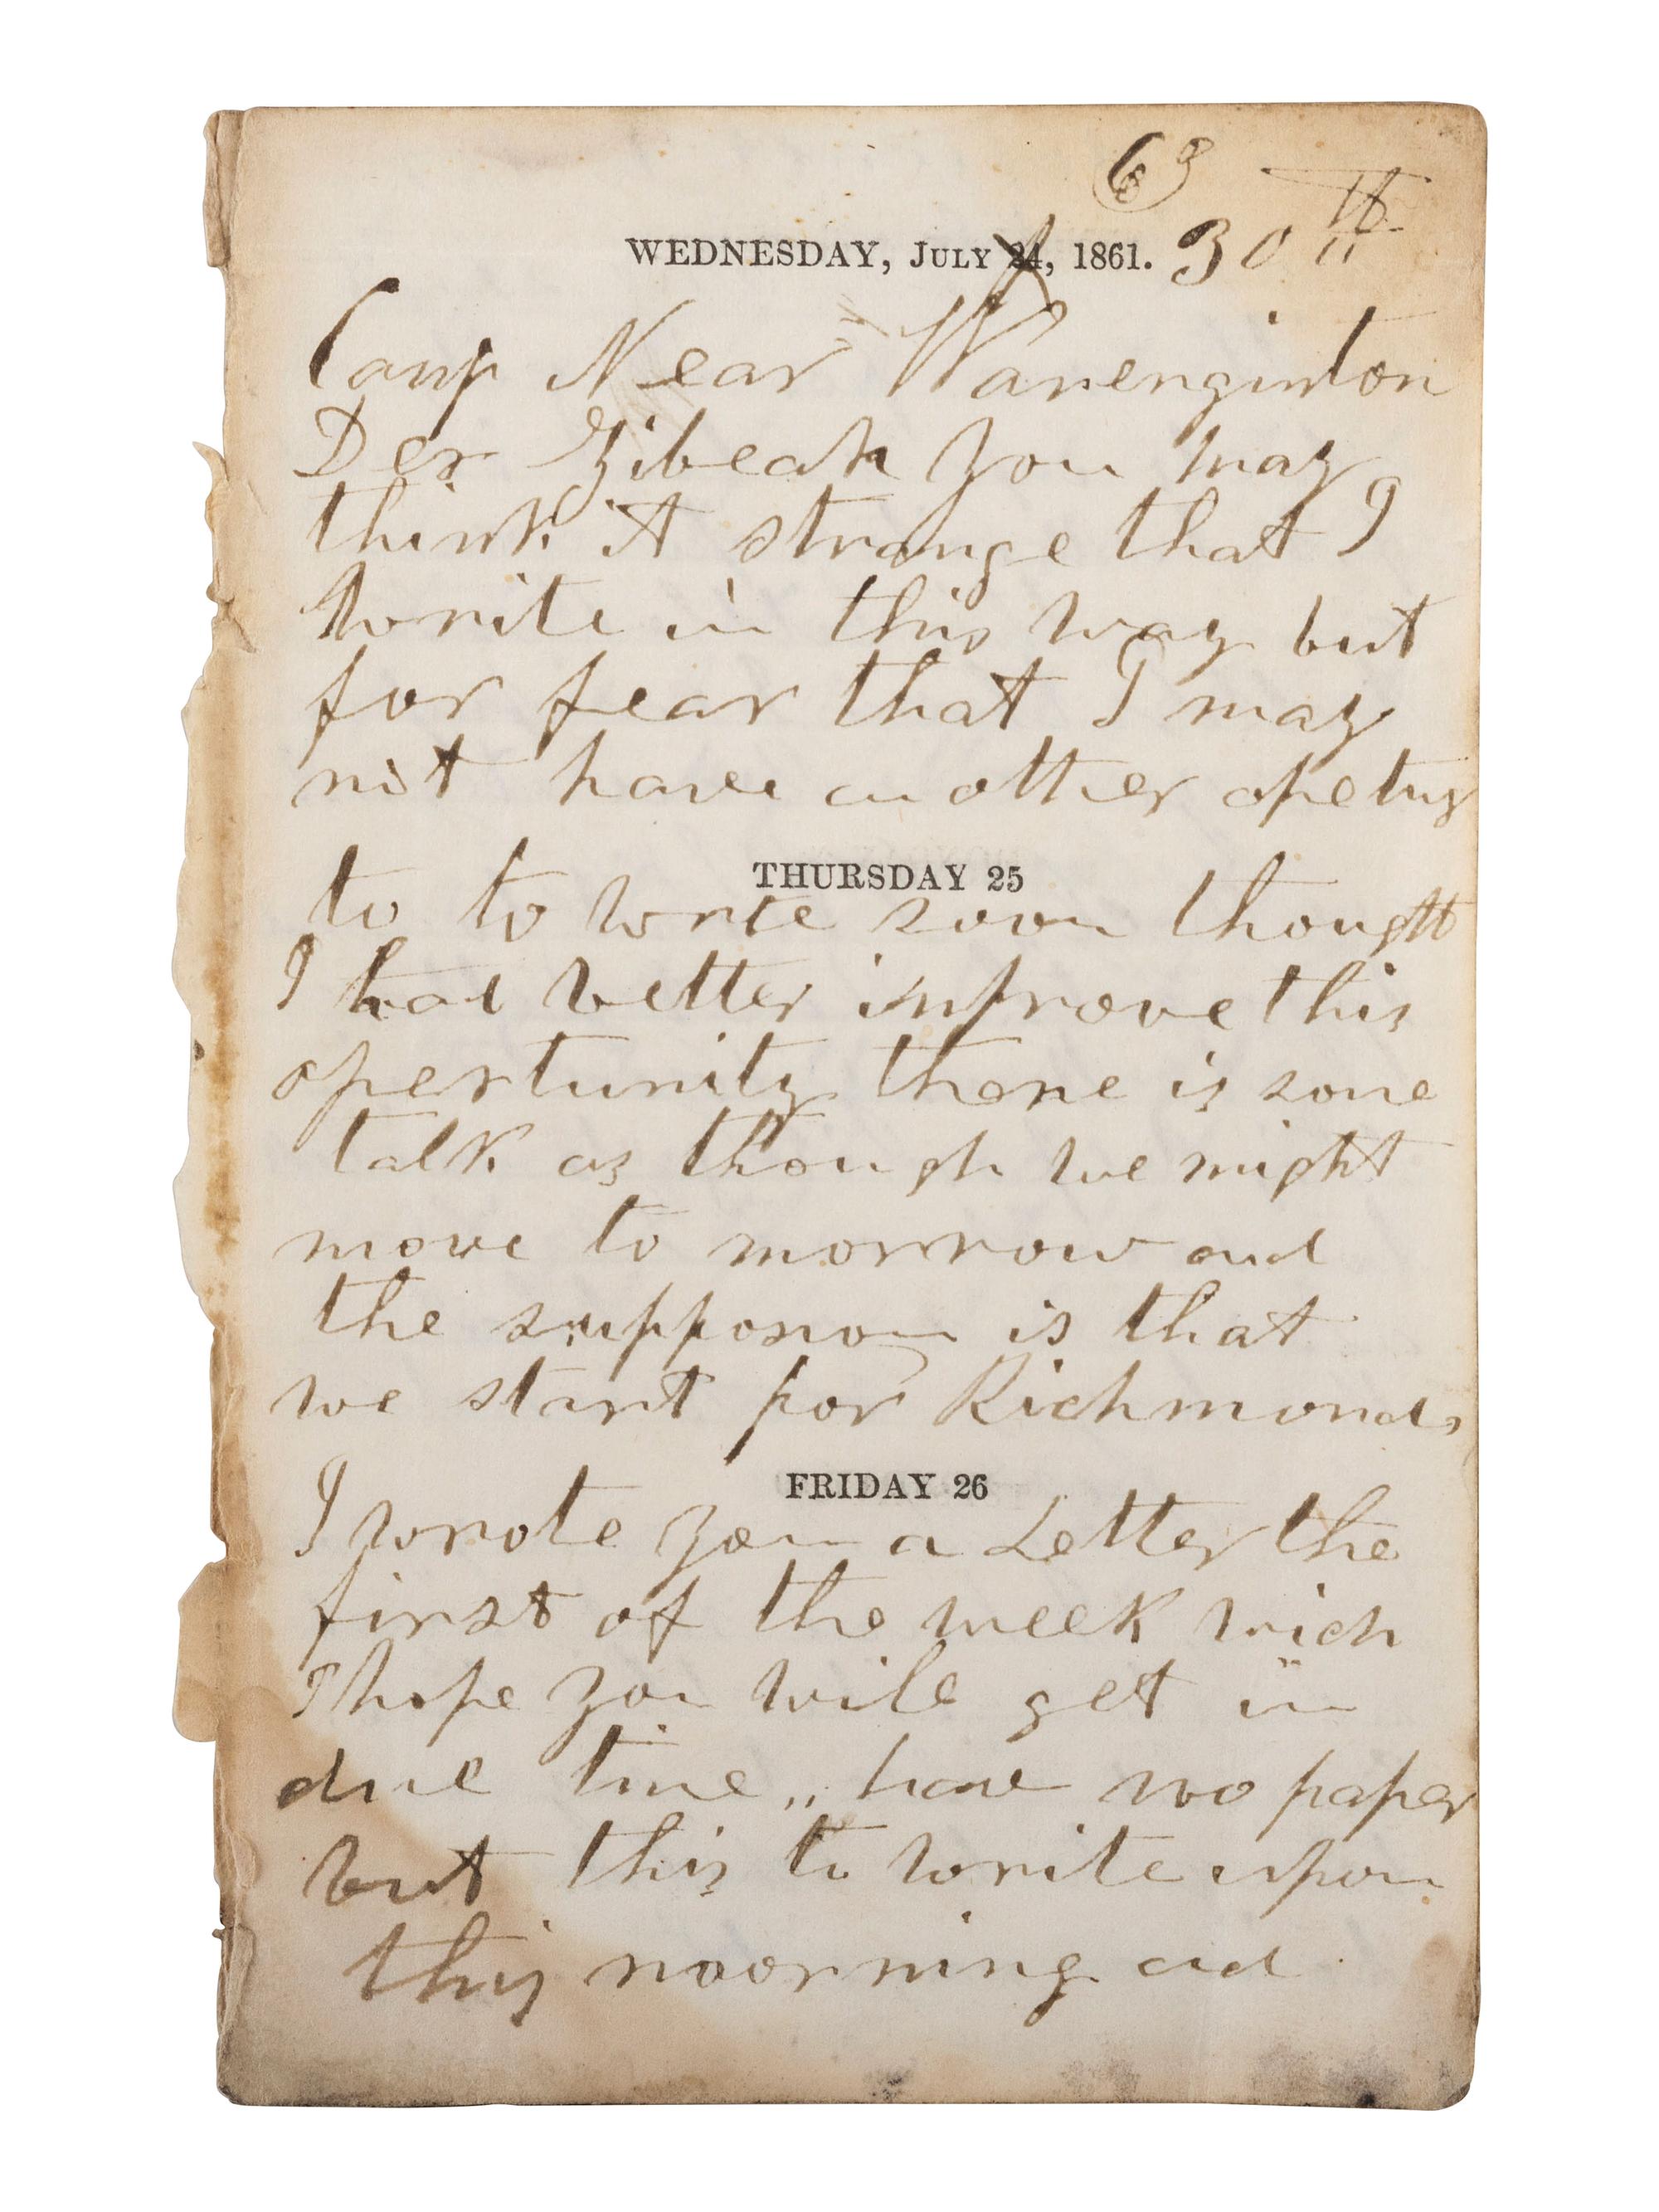 63
WEDNESDAY, JULY 24, 1861. 30th
Camp Near Warenginton
Der Zibeah you may
think it strange that I
write in this way but
for fear that I may
not have another opetuy
THURSDAY 25
to to write soon thought
I had better improve this
opertunity there is some
talk as though we might
move to morrow and
the supposion is that
we start for Richmond,
FRIDAY 26
I wrote you a Letter the
first of the week wich
I hope you will get in
due time,, have no paper
but this to write upon
this moorning and